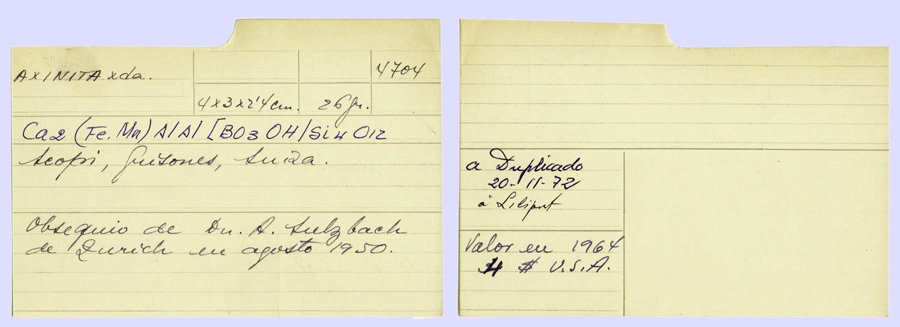 AXINITA xda.
4704
4x3x2'4cm. 26 gr.
Ca2 (Fe. Mn) Al Al [BO3 OH/Si4 O12
Scopi, Grisones, Suiza.
Obsequio de Dr. A. Sulzbach
de Zurich en agosto 1950.
a Duplicado
20-11-72
à Liliput
Valor en 1964
4 $ U.S.A.